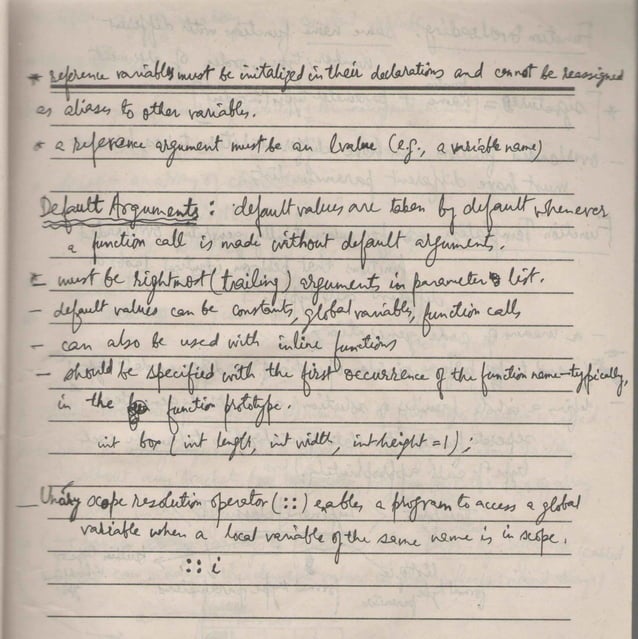 * reference variables must be initalized in their declarations and cannot be reassigned
as aliases to other variables.
* a reference argument must be an lvalue (e.g., a variable name)
Default Arguments : default values are taken by default whenever
a function call is made without default argument.
* must be rightmost (trailing) arguments in parameter list.
- default values can be constants, global variables, function calls
- can also be used with inline functions
- should be specified with the first occurrence of the function name - typically,
in the function prototype.
int box (int length, int width, int height = 1) ;
- Unary scope resolution operator (::) enables a program to access a global
variable when a local variable of the same name is in scope.
:: i